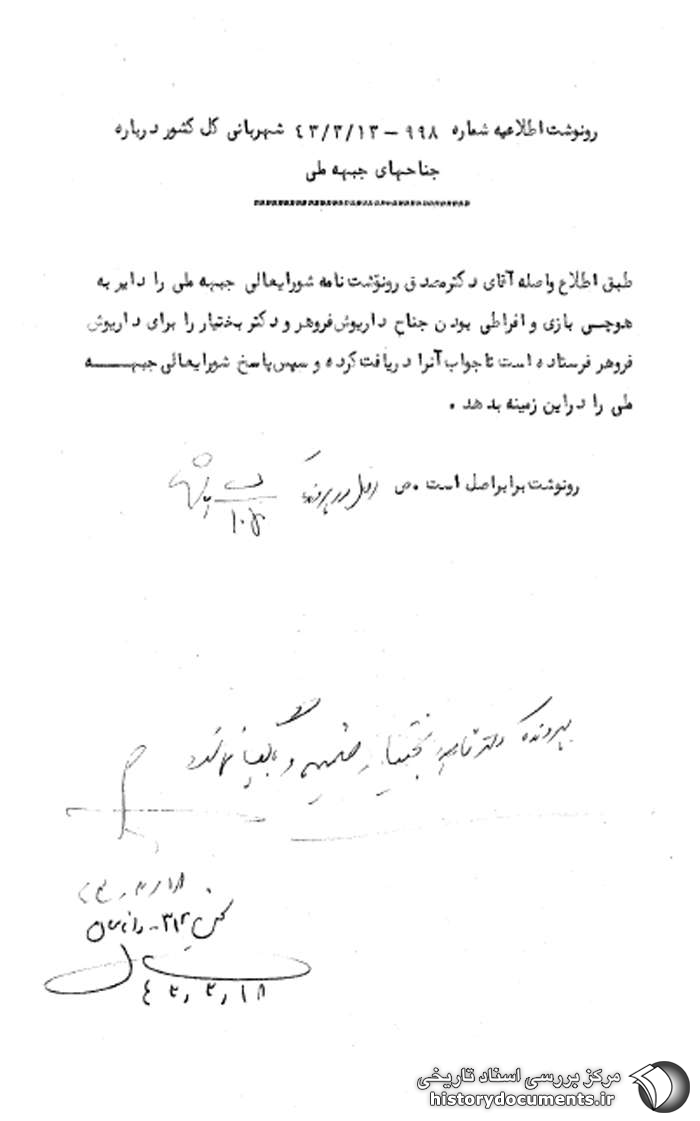 رونوشت اطلاعیه شماره ۹۹۸ – ۴۳/۳/۱۳ شهربانی کل کشور درباره
جناحهای جبهه ملی
طبق اطلاع واصله آقای دکتر مصدق رونوشت نامه شورایعالی جبهه ملی را دایر به
هوچی بازی و افراطی بودن جناح داریوش فروهر و دکتر بختیار را برای داریوش
فروهر فرستاده است تا جواب آنرا دریافت کرده و سپس پاسخ شورایعالی جبهه
ملی را در این زمینه بدهد .
رونوشت برابر اصل است . ص اصل در پرونده
بپرونده دکتر شاپور بختیار ضمیمه و بایگانی شود
۳۱۲
۴۳/۳/۱۸
مرکز بررسی اسناد تاریخی
historydocuments.ir